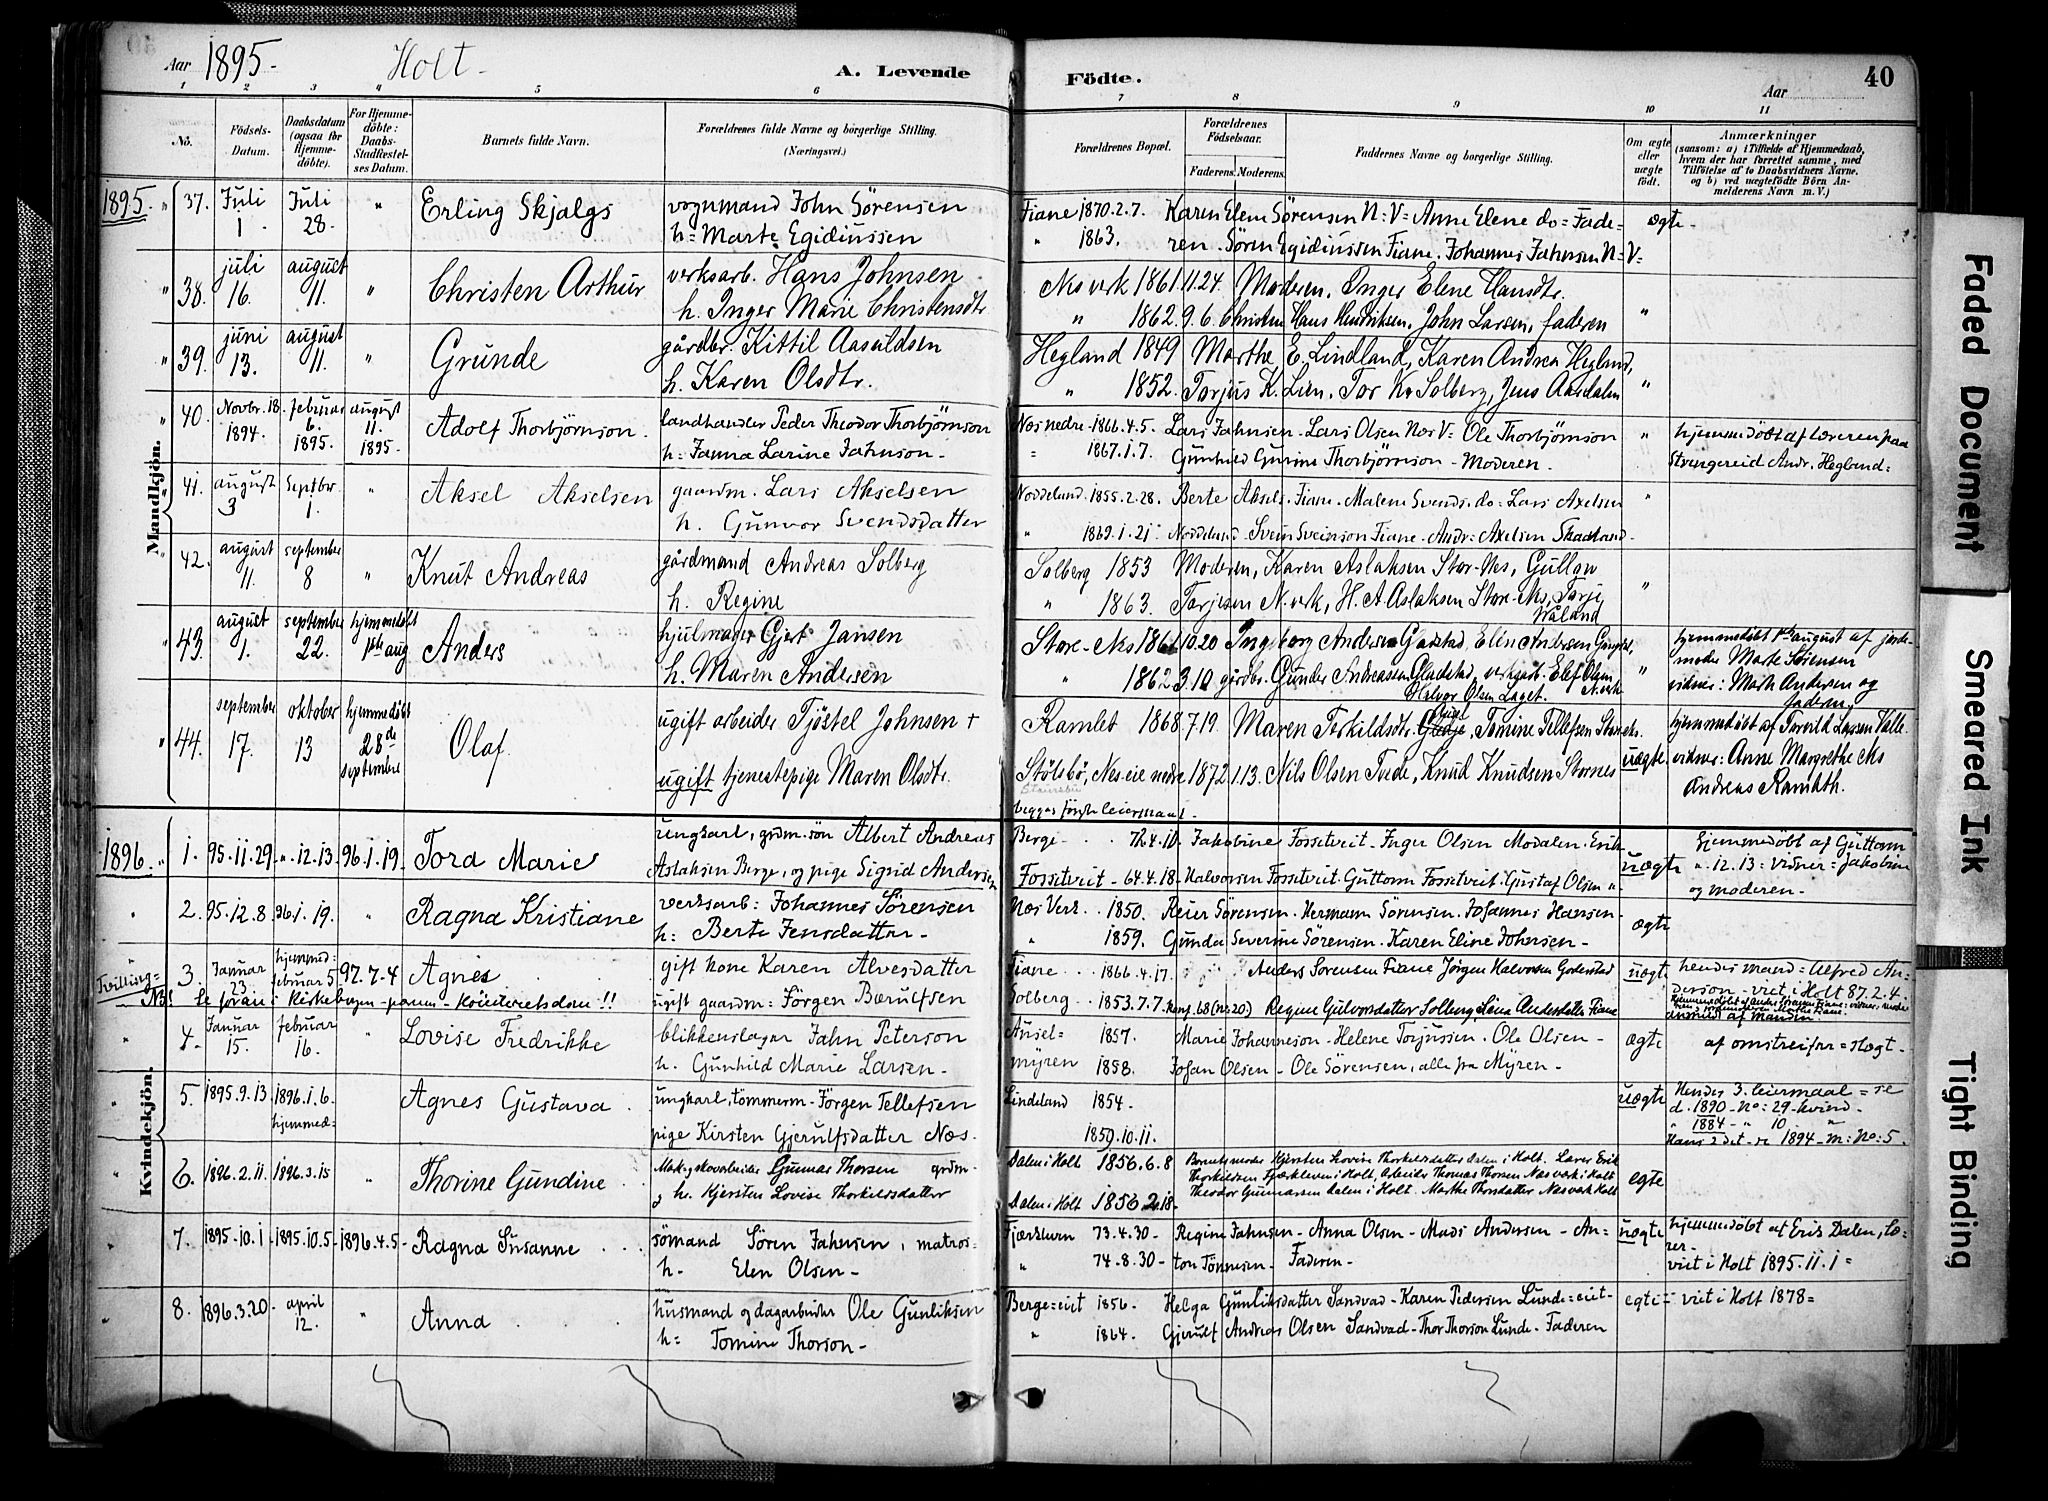 Aar 1895. Holt. A. Levende Födte. Aar 40
1 2 3 4 5 6 7 8 9 10 11
No. Födsels-Datum. Daabsdatum (ogsaa for Hjemmedöbte). For Hjemmedöbte: Daabs-Stadfestelses Datum. Barnets fulde Navn. Forældrenes fulde Navne og borgerlige Stilling. (Næringsvei.) Forældrenes Bopæl. Forældrenes Födselsaar. Faderens. Moderens. Faddernes Navne og borgerlige Stilling. Om ægte eller uægte födt. Anmærkninger (saasom: a) i Tilfælde af Hjemmedaab, hvem der har forrettet samme, med Tilföielse af to Daabsvidners Navne. og b) ved uægtefödte Börn Anmelderens Navn m. V.)
Mandkjön.
1895. " 37. Juli 1. Juli 28. " Erling Skjalgs vognmand John Sörensen Fiane 1870.2.7. Karen Elen Sörensen N=V= Anne Elene do= Fade- ægte.
h= Marte Egidiussen " 1863. ren. Sören Egidiussen Fiane. Johannes Jahnsen N=V=
" 38. juli 16. august 11. " Christen Arthur verksarb. Hans Johnsen Nes verk 1861.11.24. Moderen, Inger Elene Hansdtr.
h. Inger Marie Christensdtr " 1862.9.6. Christen Hans Hendriksen, John Larsen, faderen "
" 39. juni 13. august 11. " Grunde gårdbr. Kittil Aasuldsen Hegland 1849 Marthe E. Lindland, Karen Andrea Hegland,
h. Karen Olsdtr. " 1852. Torjus K. Lien, Tor K. Solberg, Jens Aasdalen "
" 40. Novbr. 18. 1894. februar 6. 1895. august 11. 1895. Adolf Thorbjörnson. landhandler Peder Theodor Thorbjörnson Nes nedre 1866.4.5. Lars Jahnsen - Lars Olsen Nes V= Ole Thorbjörnson " hjemmedöbt af læreren paa
h= Janna Larine Jahnson. = 1867.1.7. Gunhild Gurine Thorbjörnson - Moderen. Strengereid Andr. Hegland=
41. august 3 Septbr. 1. " Aksel Akselsen gaardm. Lars Akselsen Noddeland. 1855.2.28. Berte Aksels. Fiane. Malene Svends. do= Lars Axelsen "
h. Gunvor Svendsdatter " 1869.1.21. Noddeland. Svein Sveinson Fiane. Andr. Axelsen Skadland.
" 42. august 11. september 8 " Knut Andreas gårdmand Andreas Solberg Solberg 1853 Moderen, Karen Aslaksen Store-Nes, Gullow
h. Regine " 1863. Torjesen N. verk, H. A. Aslaksen Store-Nes, Torje Wåland "
" 43. august 1. september 22. hjemmedöbt 1ste aug Anders hjulmager Gjert Jansen Store-Nes 1861.10.20 Ingeborg Andersen Gadstad, Elin Andersen hjemmedöbt 1ste august af jorde-
moder Marte Sörensen
h. Maren Andersen " 1862 3.10 gårdbr. Gunder Andreassen Gladstad, verksarb. Elef Olsen N. verk " vidner: Marte Andersen og
Halvor Olsen Laget. faderen
" 44. september 17. oktober 13 hjemmedöbt 28de september Olaf. ugift arbeider Tjöstel Johnsen + Ramlet 1868.7.19 Maren Terkildsdtr. Tomine Tellefsen hjemmedöbt af Torvild Larsen Valle.
ugift tjenestepige Maren Olsdtr. Stölsbö, Nes eie nedre 1872.1.13. Nils Olsen Tvede, Knud Knudsen Stornes uægte. vidner: Anne Margrethe Nes
Andreas Ramlath.
begges første leiermaal.
Kvindekjön.
1896. " 1. 95.11.29. ".12.13. 96.1.19. Tora Marie ungkarl, grdm. sön Albert Andreas Berge. 72.4.10. Jakobine Fosstveit. Inger Olsen Modalen. Erik uægte Hjemmedöbt af Guttorm
Aslaksen Berge, og pige Sigrid Andersen Fosstveit. 64.4.18. Halvorsen Fosstveit. Guttorm Fosstveit. Gustaf Olsen ". ".12.13= vidner= Jakobine
og moderen.
" 2. 95.12.8 96.1.19. " Ragna Kristiane verksarb: Johannes Sörensen Nes Verk. 1850. Reier Sörensen. Hermann Sörensen. Johannes Hansen. ægte
h= Berte Jensdatter. " 1859. Gunda Severine Sörensen. Karen Eline Johnsen.
Tvilling= 3. Januar 23. hjemmed= februar 5 97.7.4 Agnes gift kone Karen Alvesdatter Fiane 1866.4.17. Anders Sorensen Fiane Jörgen Halvorsen Goderstad uægt. hendes mand= Alfred An-
derson - viet i Holt 87.2.4.
ugift gaardm: Jörgen Bærulfsen Solberg. 1853.7.7. Konf. 68 (No 20.) Regine Gulvorsdatter Solberg, Lina Andersdatter Fiane
NB! Se foran i Kirkebogen
" 4. Januar 15. februar 16. " Lovise Fredrikke blikkenslager Jahn Peterson Ansel- 1857. Marie Johanneson - Helene Torjussen. Ole Olsen - ægte af omstreifer= slægt.
h. Gunhild Marie Larsen. myren 1858. Johan Olsen - Ole Sörensen, alle fra Myren.
" 5. 1895.9.13 1896.1.6. hjemmed= Agnes Gustava ungkarl, tömmerm. Jörgen Tellefsen Lindeland 1854. uægte Hendes 3. leiermaal= se
d. 1890 - No: 29. kvind.
pige Kirsten Gjerulfsdatter Næs. 1859.10.11. " 1884 - " 10 "
Hans 2det - se 1894 - m: No: 5.
" 6. 1896.2.11. 1896.3.15 " Thorine Gundine Gunnar Thorsen grdm. Dalen i Holt 1856.6.8 Barnets moder Kjersten Lovise Thorkildsdatter Dalen i Holt. Lærer Erik
Thorkildsen Fjærkleven i Holt, Arbeider Thomas Thorsen Nesverk i Holt egte
og h. Kjersten Lovise Thorkildsdatter Dalen i Holt 1856 2.18. Theodor Gunnarsen Dalen i Holt. Marthe Thorsdatter Nesverk Holt
7. 1895.10.1 1895.10.5 1896.4.5. Ragna Susanne sömand Sören Jahnsen, matros= 73.4.30. Regine Jahnsen - Anna Olsen - Mads Andersen - An= uægte hjemmedöbt af Erik Dalen, læ-
rer.
h. Elen Olsen. " 74.8.30. ton Tönnesen. Faderen. viet i Holt 1895.11.1=
" 8. 1896.3.20. april 12. " Anna husmand og dagarbeider Ole Gunliksen Berge=eiet 1856. Helga Gunliksdatter Sandvad. Karen Pedersen Lunde=eiet. egte= viet i Holt 1878=
h= Tomine Thorson. " 1864. Gjerulf Andreas Olsen Sandvad. Thor Thorson Lunde. Faderen
Faded Document
Smeared Ink
Tight Binding